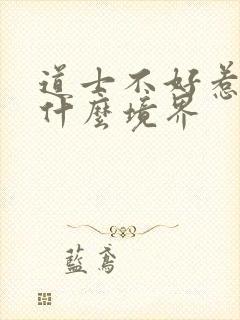 道士不好惹
什麼境界
藍鳶